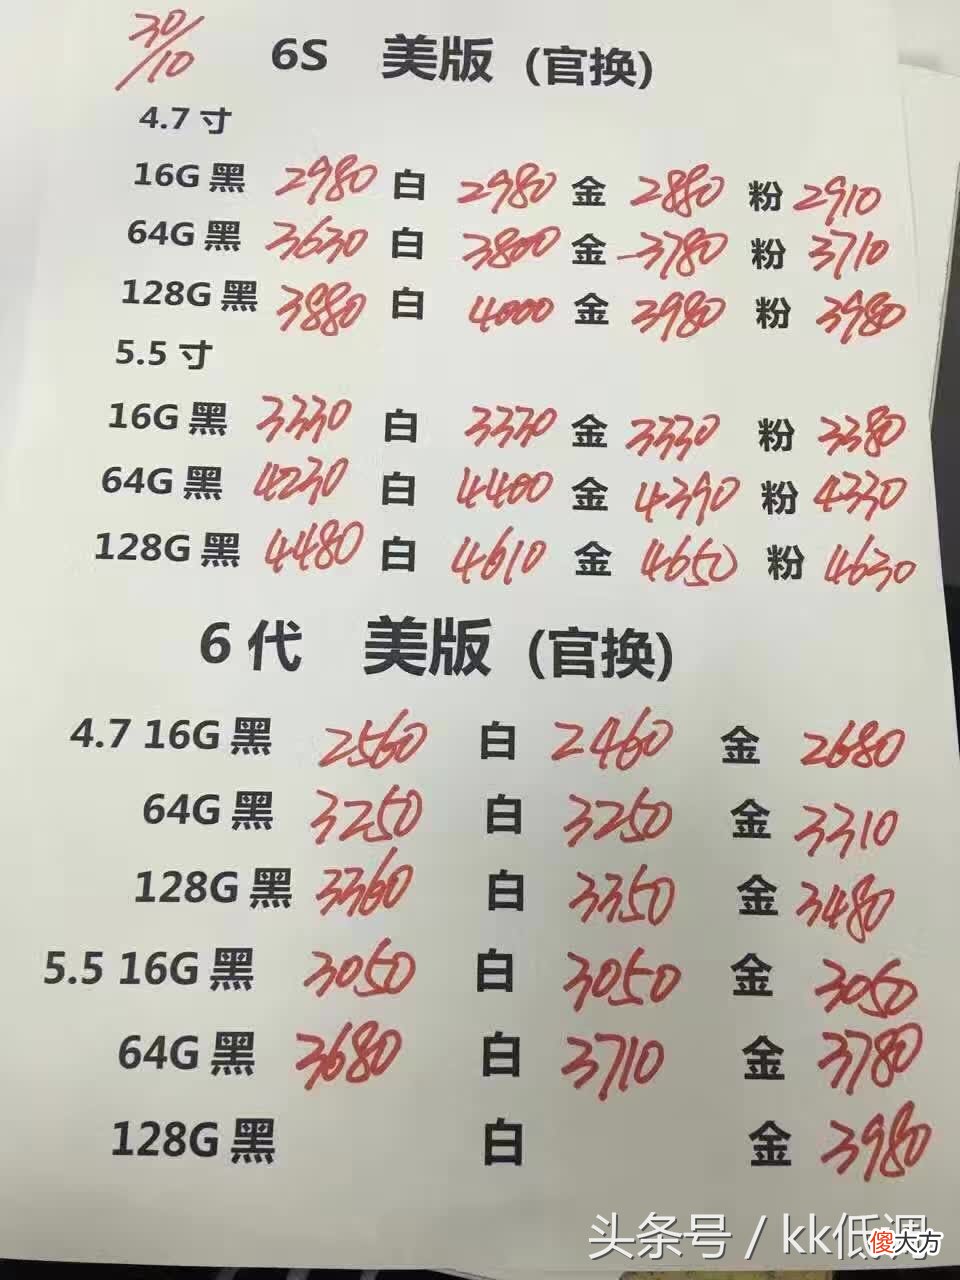 30/10
6S 美版 (官换)
4.7 寸
16G 黑 2980 白 2980 金 2880 粉 2910
64G 黑 3630 白 3800 金 3780 粉 3710
128G 黑 3880 白 4000 金 3980 粉 3980
5.5 寸
16G 黑 3330 白 3330 金 3330 粉 3380
64G 黑 4230 白 4400 金 4390 粉 4330
128G 黑 4480 白 4610 金 4650 粉 4630
6 代 美版 (官换)
4.7 16G 黑 2560 白 2460 金 2680
64G 黑 3250 白 3250 金 3310
128G 黑 3360 白 3350 金 3480
5.5 16G 黑 3050 白 3050 金 3050
64G 黑 3680 白 3710 金 3780
128G 黑 白 金 3980
头条号 / kk低调
傻大方